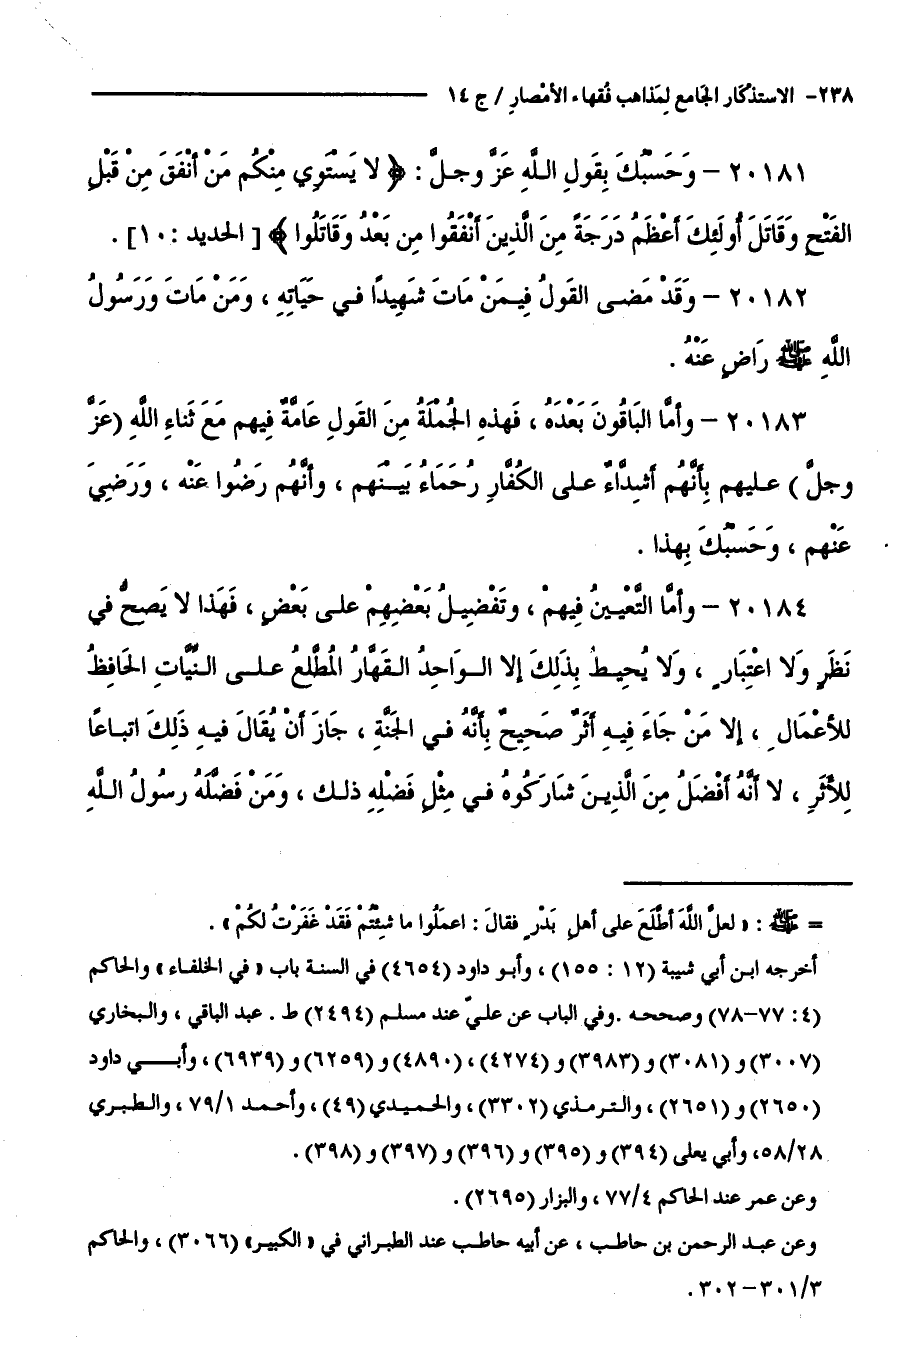 ٢٣٨- الاستذْكَار الجَامع لِمَذاهب فُقهاء الأمْصارِ / ج ١٤
٢٠١٨١ – وَحَسْبُكَ بِقَولِ اللَّهِ عَزَّ وجلَّ : ﴿ لا يَسْتَوِي مِنْكُم مَنْ أنْفَقَ مِنْ قَبْلِ
الفَتْحِ وقَاتَلَ أُولَئِكَ أعْظَمُ دَرَجَةً مِنَ الَّذِينَ أنْفَقُوا مِن بَعْدُ وقَاتَلُوا ﴾ [ الحديد : ١٠] .
٢٠١٨٢ – وَقَدْ مَضى القَولُ فِيمَنْ مَاتَ شَهِيدًا في حَيَاتِهِ ، وَمَنْ مَاتَ وَرَسُولُ
اللَّهِ ﷺ رَاضٍ عَنْهُ .
٢٠١٨٣ – وأمَّا البَاقُونَ بَعْدَهُ ، فَهذهِ الجُمْلَةُ مِنَ القَولِ عَامَّةٌ فِيهم مَعَ ثَناءِ اللَّهِ (عَزَّ
وجلَّ ) عليهم بِأنَّهُم أشِدَّاءُ على الكُفَّارِ رُحَمَاءُ بَيْنَهم ، وأنَّهُم رَضُوا عَنْه ، وَرَضِيَ
عَنْهم ، وَحَسْبُكَ بِهذا .
٢٠١٨٤ – وأمَّا التَّعْيِينُ فِيهمْ ، وتَفْضِيلُ بَعْضِهِمْ على بَعْضٍ ، فَهَذا لا يَصحُّ في
نَظَرٍ وَلا اعْتِبَارٍ ، وَلا يُحِيطُ بِذَلِكَ إلا الوَاحِدُ القَهَّارُ المُطَّلعُ على النِّيَّاتِ الحَافِظُ
للأعْمَالِ ، إلا مَنْ جَاءَ فِيهِ أثَرٌ صَحِيحٌ بِأنَّهُ في الجَنَّةِ ، جَازَ أنْ يُقَالَ فيهِ ذَلِكَ اتباعًا
لِلأثَرِ ، لا أنَّهُ أفْضَلُ مِنَ الَّذِينَ شَارَكُوهُ في مِثْلِ فَضْلِهِ ذلك ، وَمَنْ فَضَّلَهُ رسُولُ اللَّهِ
= ﷺ : « لعلَّ اللَّهَ اطَّلَعَ على أهلِ بَدْرٍ فقالَ : اعمَلُوا ما شِئْتُمْ فَقَدْ غَفَرْتُ لكُمْ » .
أخرجه ابن أبي شيبة (١٢ : ١٥٥) ، وأبو داود (٤٦٥٤) في السنة باب « في الخلفاء » والحاكم
(٤: ٧٧–٧٨) وصححه .وفي الباب عن عليّ عند مسلم (٢٤٩٤) ط . عبد الباقي ، والبخاري
(٣٠٠٧) و (٣٠٨١) و (٣٩٨٣) و (٤٢٧٤) ، (٤٨٩٠) و (٦٢٥٩) و (٦٩٣٩) ، وأبي داود
(٢٦٥٠) و (٢٦٥١) ، والترمذي (٣٣٠٢) ، والحميدي (٤٩) ، وأحمد ٧٩/١ ، والطبري
٥٨/٢٨، وأبي يعلى (٣٩٤) و (٣٩٥) و (٣٩٦) و (٣٩٧) و (٣٩٨) .
وعن عمر عند الحاكم ٧٧/٤ ، والبزار (٢٦٩٥) .
وعن عبد الرحمن بن حاطب ، عن أبيه حاطب عند الطبراني في « الكبير» (٣٠٦٦) ، والحاكم
٣٠١/٣–٣٠٢ .